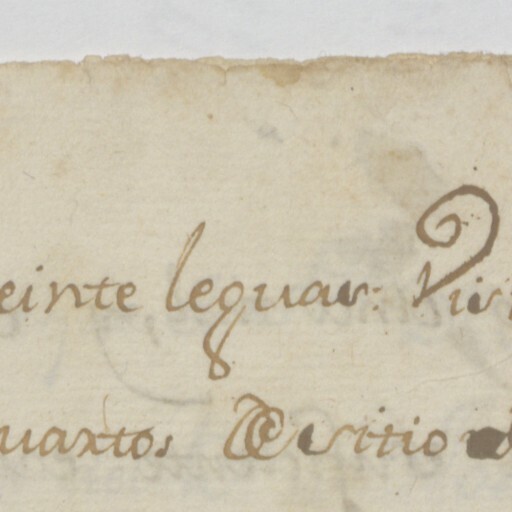 einte leguas: Vis
uartos De sitio